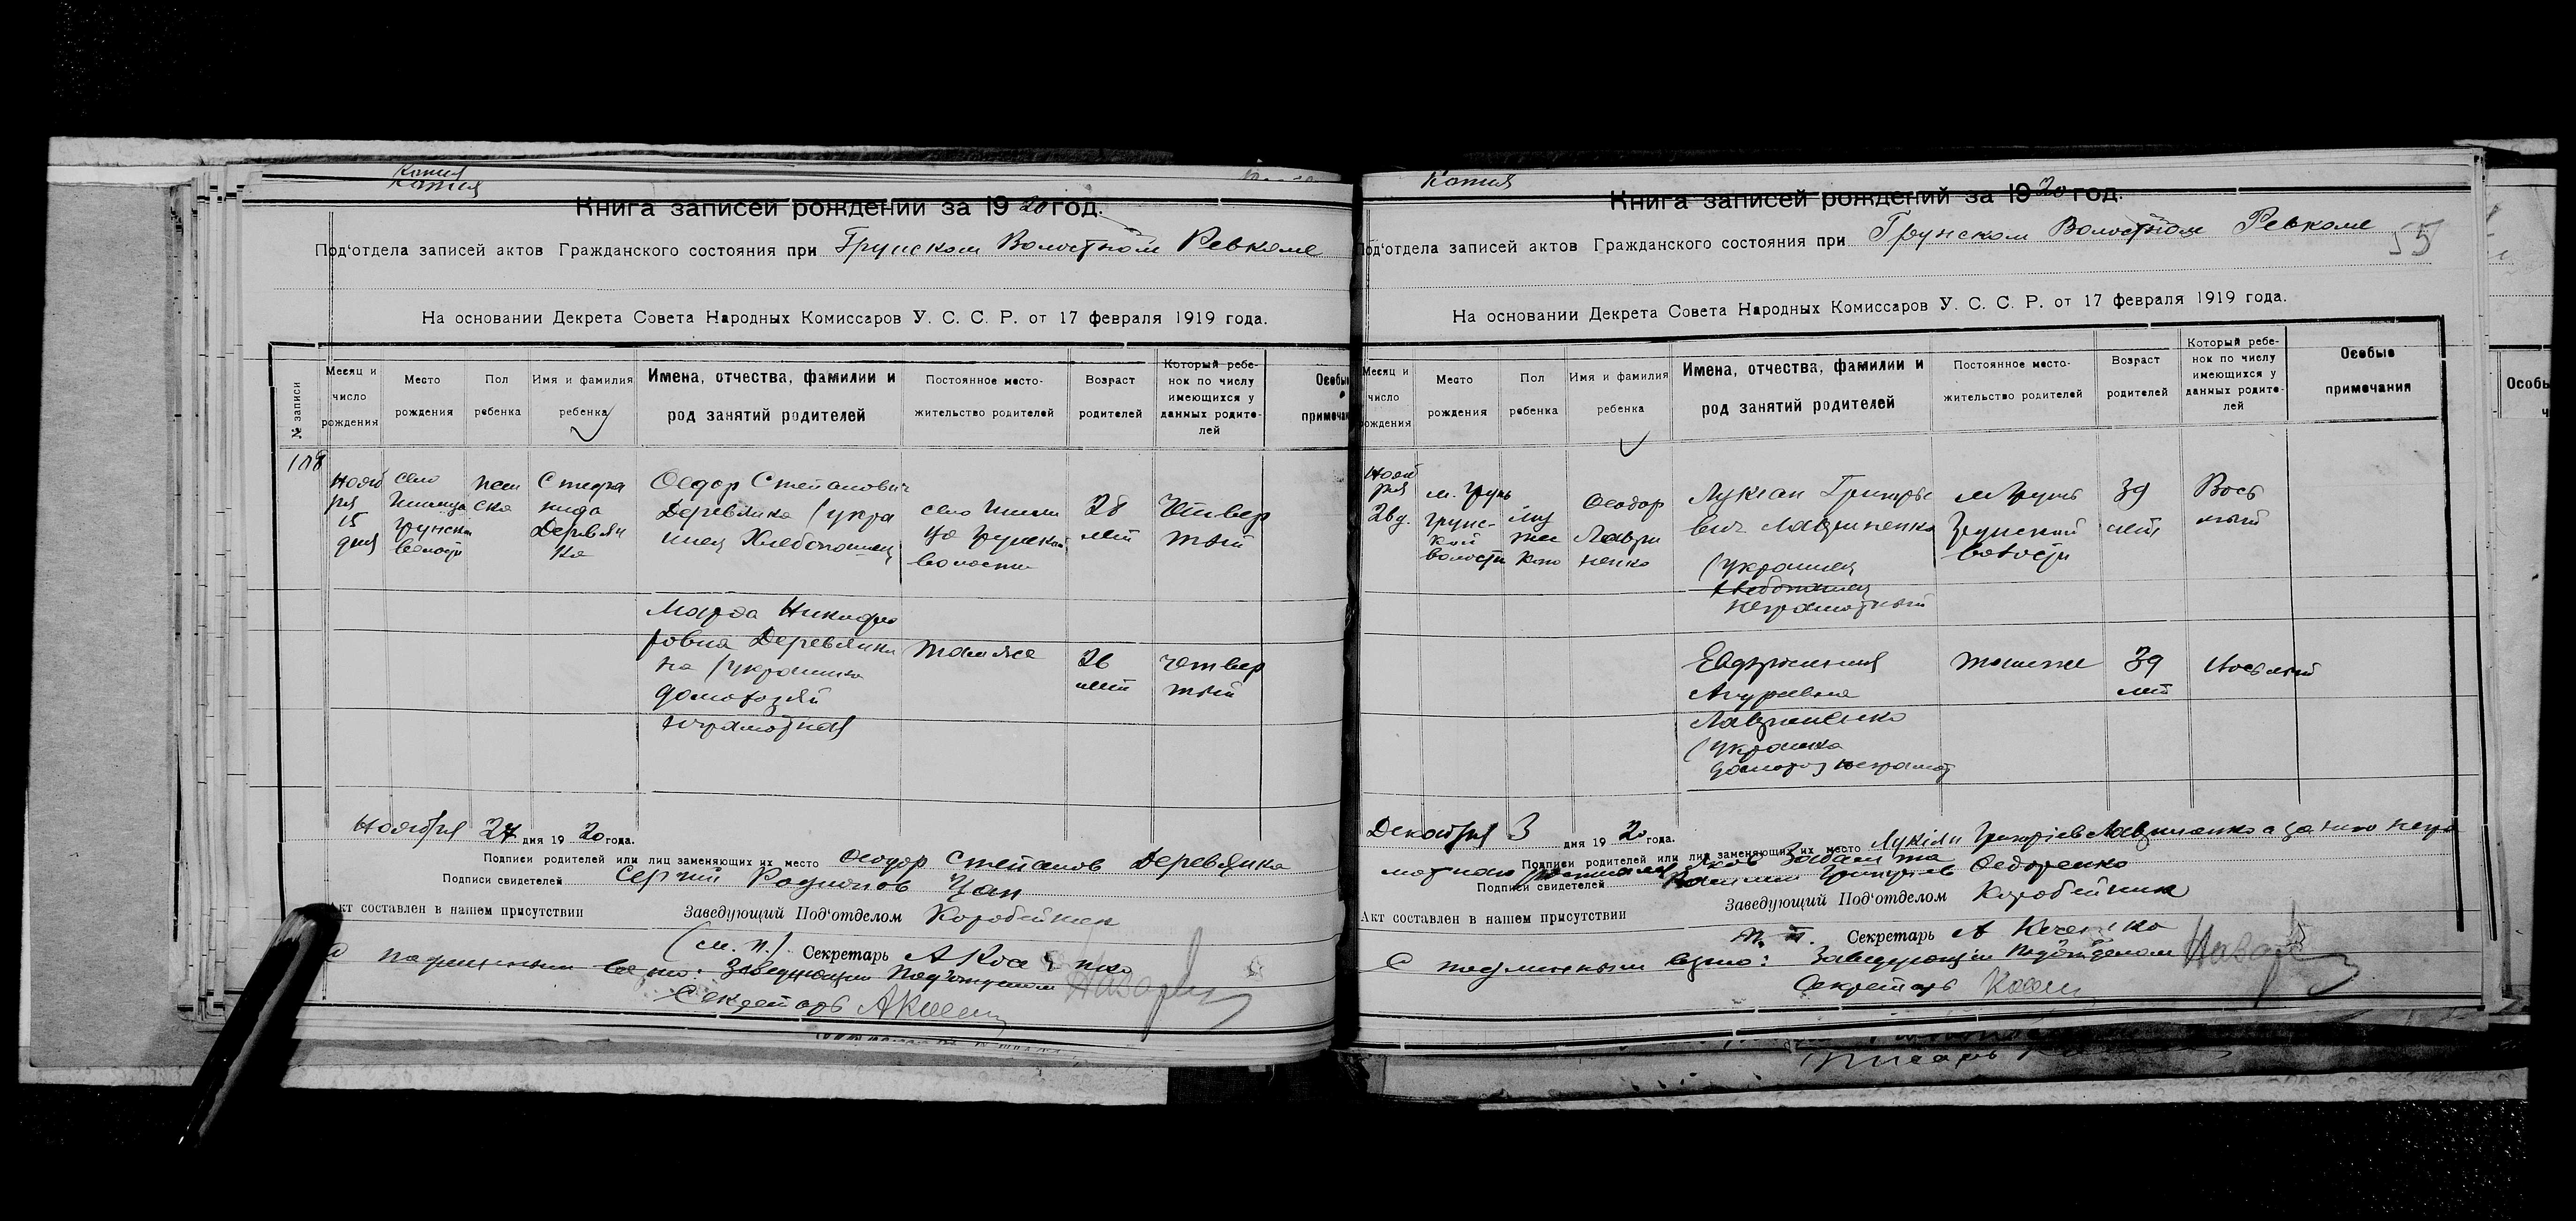 Копия
Копия
Книга записей рождений за 1920 год.
Под'отдела записей актов Гражданского состояния при Грунском Волостном Ревкоме
На основании Декрета Совета Народных Комиссаров У. С. С. Р. от 17 февраля 1919 года.
№ записи
Месяц и число рождения
Место рождения
Пол ребенка
Имя и фамилия ребенка
Имена, отчества, фамилии и род занятий родителей
Постоянное место-жительство родителей
Возраст родителей
Который ребе-нок по числу имеющихся у данных родите-лей
Особы
примечан
108
Нояб
ря
15
дня
село
Грунской
волости
жен
ско
Стефа
нида
Деревян
ко
Феодор Степанович
Деревянко (укра
инец Хлебопашец
село
Грунской
волости
28
лет
Четвер
тый
Марфа Никифо
ровна Деревянки
на (украинка
домохозяй
неграмотная
тамже
26
лет
четвер
тый
Ноября 27 дня 1920 года.
Подписи родителей или лиц заменяющих их место Феодор Степанов Деревянко
Подписи свидетелей Сергий Родионов Цап
Акт составлен в нашем присутствии Заведующий Под'отделом Коробейник
(м. п.) Секретарь А
С подлинным верно: Заведующий Подотделом
Секретарь
Копия
Книга записей рождений за 1920 год.
55
Под'отдела записей актов Гражданского состояния при Грунском Волостном Ревкоме
На основании Декрета Совета Народных Комиссаров У. С. С. Р. от 17 февраля 1919 года.
Месяц и число рождения
Место рождения
Пол ребенка
Имя и фамилия ребенка
Имена, отчества, фамилии и род занятий родителей
Постоянное место-жительство родителей
Возраст родителей
Который ребе-нок по числу имеющихся у данных родите-лей
Особые примечания
Особы
Нояб
ря
26 д.
м. Грунь
Грунс-
кой
волости
му
жес
кого
Феодор
Лаври
ненко
Лукиан Григорье
вич Лавриненко
(украинец
хлебопашец
неграмотный
м Грунь
Грунской
волости
39
лет
Вось
мый
Евдокия
Лавриненко
(украинка
домохоз неграмот
тамже
39
лет
восьмый
Декабря 3 дня 1920 года.
Подписи родителей или лиц заменяющих их место Лукіян Григоріев Лавриненко а за него негра
мотного
Подписи свидетелей Федоренко
Акт составлен в нашем присутствии Заведующий Под'отделом Коробейник
М. П. Секретарь А
С подлинным верно: Заведующий Подотделом
Секретарь